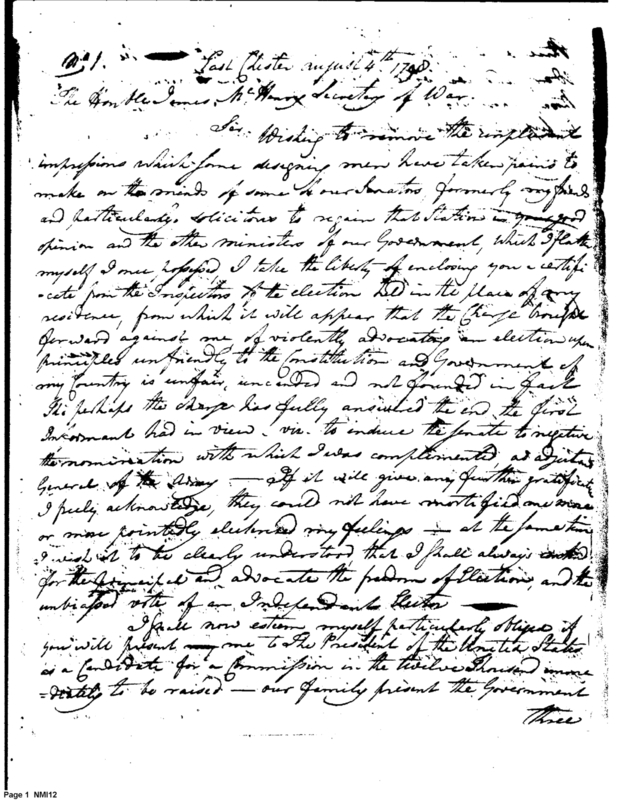 No 1.
East Chester August 4th 1798.
The Honble James McHenry Secretary of War.
Sir Wishing to remove the unpleasant
impressions which some designing men have taken pains to
make on the minds of some of our Senators formerly my friends
and particularly solicitous to regain that Station in your good
opinion and the other ministers of our Government, which I flatter
myself I once possessed I take the liberty of enclosing you a certifi
-cate from the Inspectors of the election held in the place of my
residence, from which it will appear that the Charge brought
forward against me of violently advocating an election upon
principles unfriendly to the Constitution and Government of
my Country is unfair, uncandid and not founded in fact
Tho perhaps the charge has fully answered the end the first
Informant had in view - viz. to induce the Senate to negative
the nomination with which I was complemented, as adjutant
General of the Army — If it will give any further gratification
I freely acknowledge, they could not have mortified me more
or more pointedly my feelings — at the same time
I wish it to be clearly understood that I shall always
for the principal and advocate the freedom of Election, and the
unbiassed vote of an Independent Elector —
I shall now esteem myself particularly obliged if
you will present me to The President of the United States
as a Candidate for a Commission in the twelve Thousand imme
-diately to be raised — our family present the Government
three
Page 1 NMI12